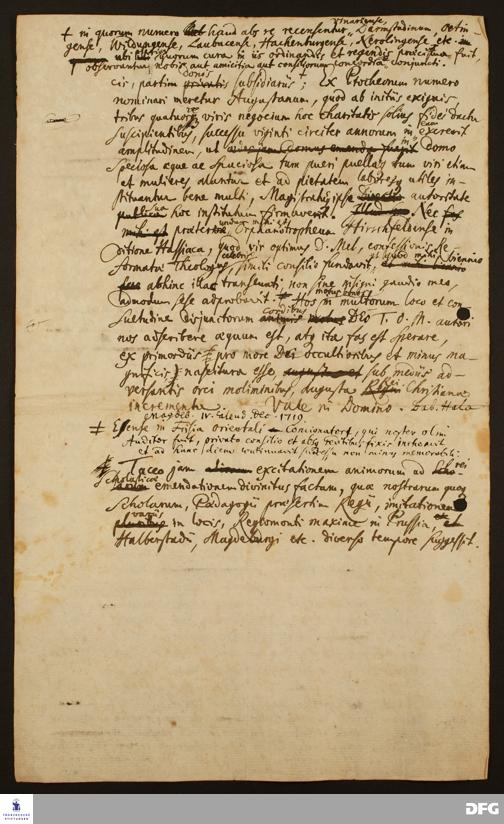 Vinariense,
‡ in quorum numero haud abs re recensentur, Darmstadinum, Oetin-
gense, Wildungense, Laubacense, Hachenburgense, Kerolingense etc.
quorum cura in iis ordinandis et regendis praecipua fuit,
observantur nobis aut amicitia aut consiliorum concordia conjuncti.
cis, partim subsidiariis; Ex Ptocheorum numero
nominari meretur Augustanum, quod ab initiis exiguis
tribus quatuor viris negocium hoc charitatis solius fidei ductu
suscipientibus, successu viginti circiter annorum in eam excrevit
amplitudinem, ut domo
speciosa aeque ac spaciosa tum pueri puellae tum viri etiam
et mulieres aluntur et ad pietatem labores utiles in-
stituantur bene multi, Magistratu ipso autoritate
sua hoc institutum firmavit. Nec
praetereundum mihi est Orphanotropheum Hirschfeldense in
ditione Hassiaca, quod vir optimus D. Mel, confessionis Re-
formatae Theologus celebris, simili consilio fundavit,
abhinc illac transeunti, non sine insigni gaudio meo,
admodum sese adprobavit. Hos in multorum loco et con-
suetudine disjunctorum cordibus DEO T. O. M. autori
nos adscribere aequum est, atq ita fas est sperare,
ex primordiis pro more Dei occultioribus et minus ma-
gnificis nascitura esse, sub mediis ad-
versantis orci moliminibus, augusta Rei Christianae
incrementa. Vale in Domino. Dab. Hala
Magdeb. IV. Calend. Dec. 1719
‡ Esense in Frisia orientali Concionator, qui noster olim
Auditor fuit, privato consilio et absq reditibus fixis inchoavit
et ad hunc diem continuavit successu non minus memorabili.
Taceo jam excitationem animorum ad rei
Scholasticae emendationem divinitus factam, quae nostrarum quoq
Scholarum, Paedagogii praesertim Regii, imitationem
variis in locis, Regiomonti maxime in Prussia,
Halberstadii, Magdeburgi etc. diverso tempore suggessit.
FRANCKESCHE
STIFTUNGEN
DFG